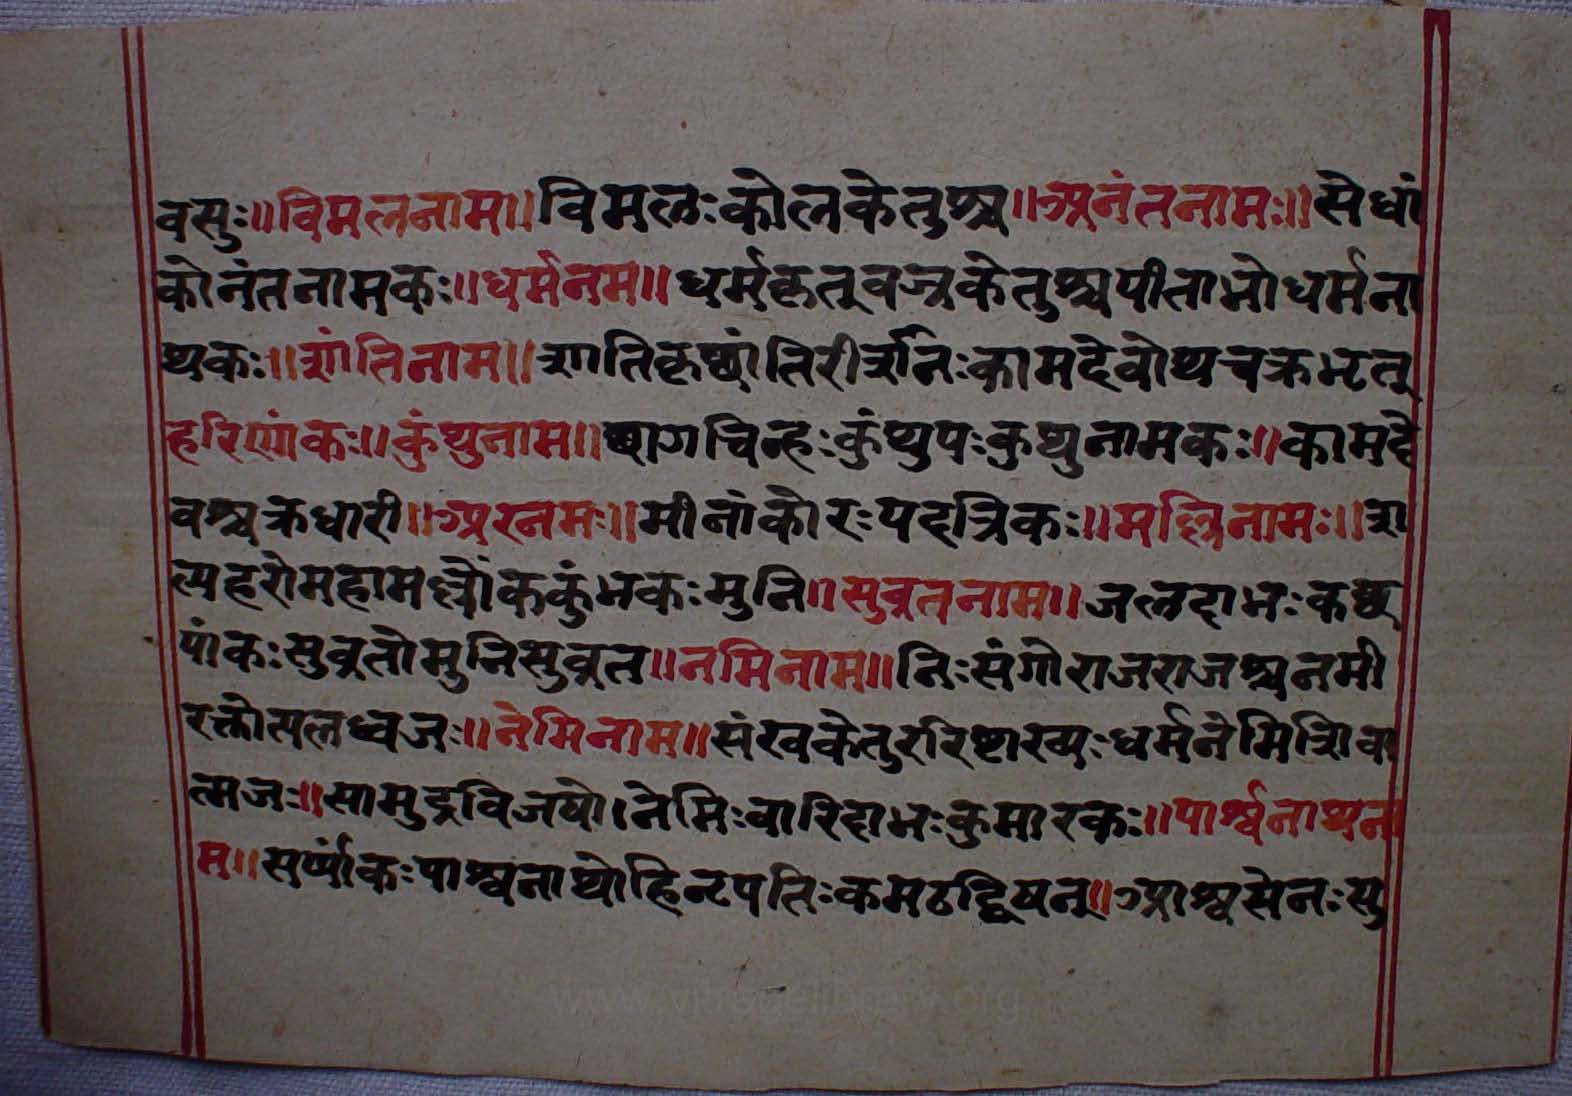 वसुः॥विमलनाम॥विमलःकोलकेतुश्च॥अनंतनामः॥सेधां
कोनंतनामकः॥धर्मनम॥धर्मकृतूवज्रकेतुश्चपीताभोधर्मना
थकः॥शांतिनाम॥शातिकृछांतिरीशनिःकामदेवोथचक्रभृतू
हरिणांकः॥कुंथुनाम॥छागचिन्हःकुंथुपःकुथुनामकः॥कामदे
वश्चक्रधारी॥अरनमः॥मीनांकोरःपदत्रिकः॥मल्लिनामः॥श
ल्यहरोमहामल्लौंककुंभकःमुनि॥सुव्रतनाम॥जलदाभःकछ
पांकःसुव्रतोमुनिसुव्रत॥नमिनाम॥निःसंगोराजराजश्चनमी
रक्तोत्पलध्वजः॥नेमिनाम॥संखकेतुररिष्टाख्यःधर्मनेमिशिवा
त्मजः॥सामुद्रविजयो।नेमिःवारिदाभःकुमारकः॥पार्श्वनाथना
म॥सर्प्पांकःपाश्वनाथोहिन्द्रपतिःकमठद्विषन्॥आश्वसेनःसु
www.vitragelibrary.org